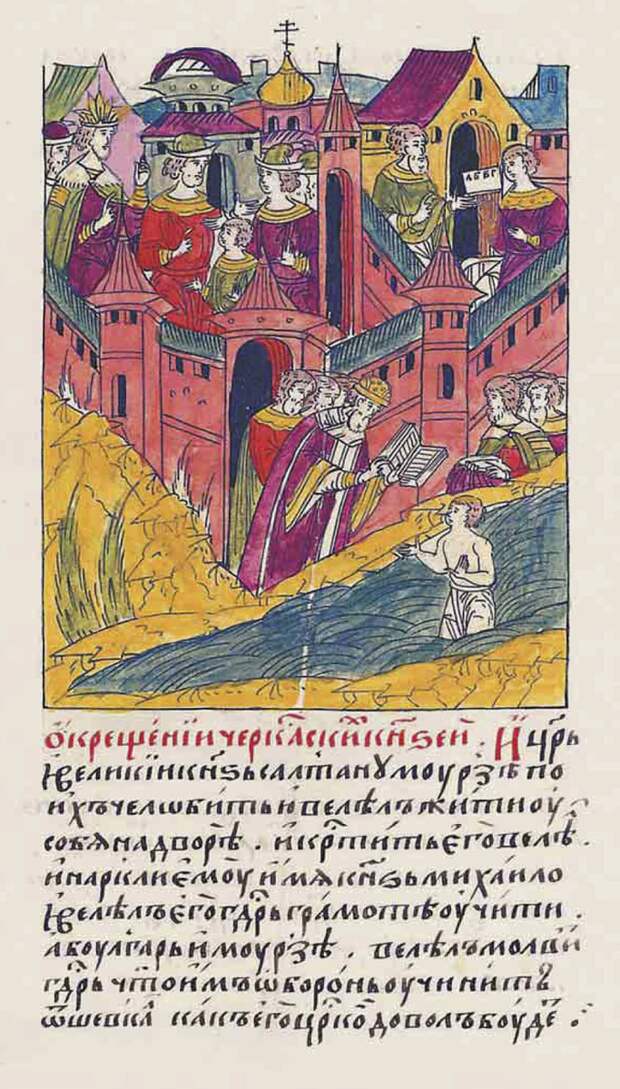 АБВГ
Ѡ крещенїи черкаⷭскиⷯ кнѧѕеи : И црⷭ҇ь
ївеликїи кнѧѕь салтану моурзѣ по
ихъ челѡбитью велѣлъ жити оу
собѧ на дворѣ . и крⷭтить его велѣⷧ .
и нарекли емоу имѧ кнѧѕь михаило
ївелѣлъ его гдⷭрь грамотѣ оучити .
а боулгарыи моурзѣ . велѣлъ молвиⷮ
гдⷭрь что имъ ѡборонь оучинитъ
ѿ шевкаⷧ какъ его црⷭкоⷨ доволъ боудеⷮ .